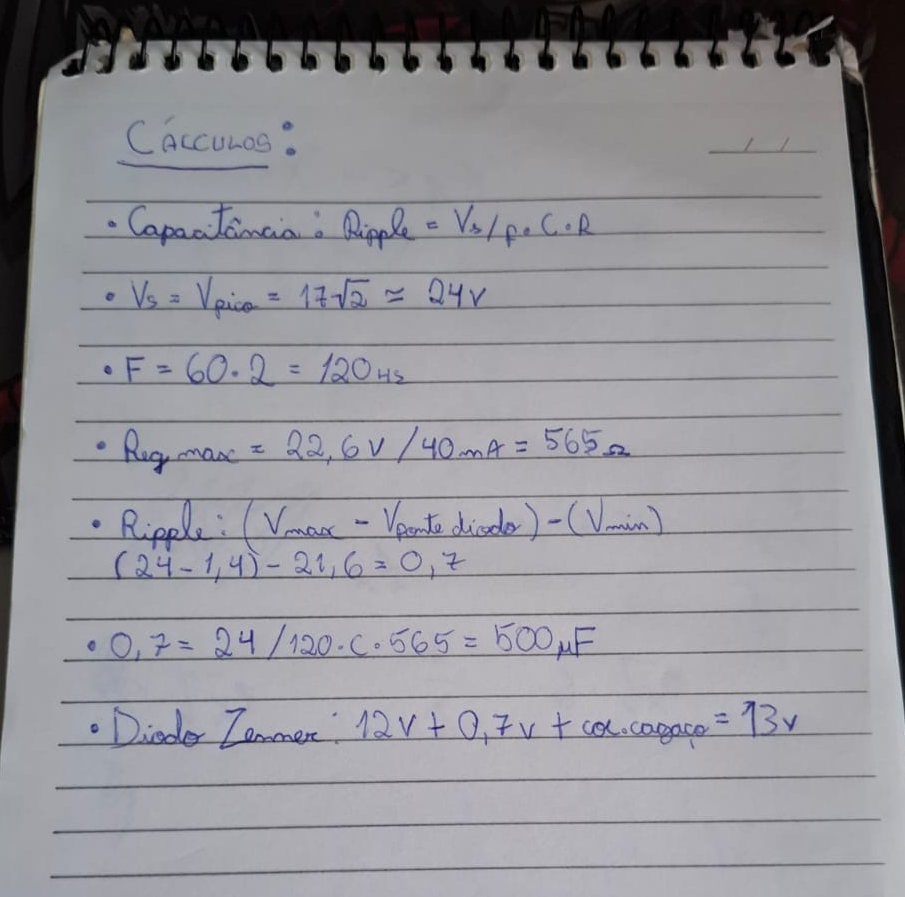 CÁLCULOS:
/ /
• Capacitância: Ripple = Vs/f.C.R
• Vs = Vpico = 17√2 ≃ 24V
• F = 60.2 = 120Hz
• Req max = 22,6V/40mA = 565Ω
• Ripple: (Vmax - Vponte diodo) - (Vmin)
(24-1,4)-21,6=0,7
• 0,7 = 24/120.C.565 = 500µF
• Diodo Zenner: 12V + 0,7v + coe.cagaço = 13v